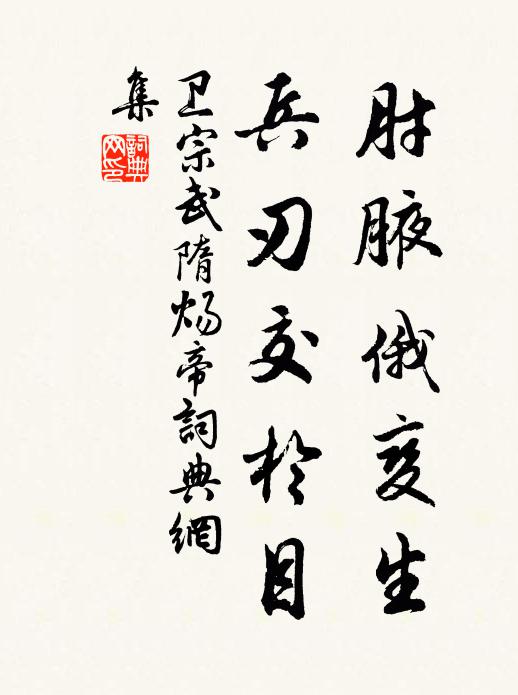 肘腋俄变生
兵刃交於目
卫宗武隋炀帝詞典網
集
詞典
网印